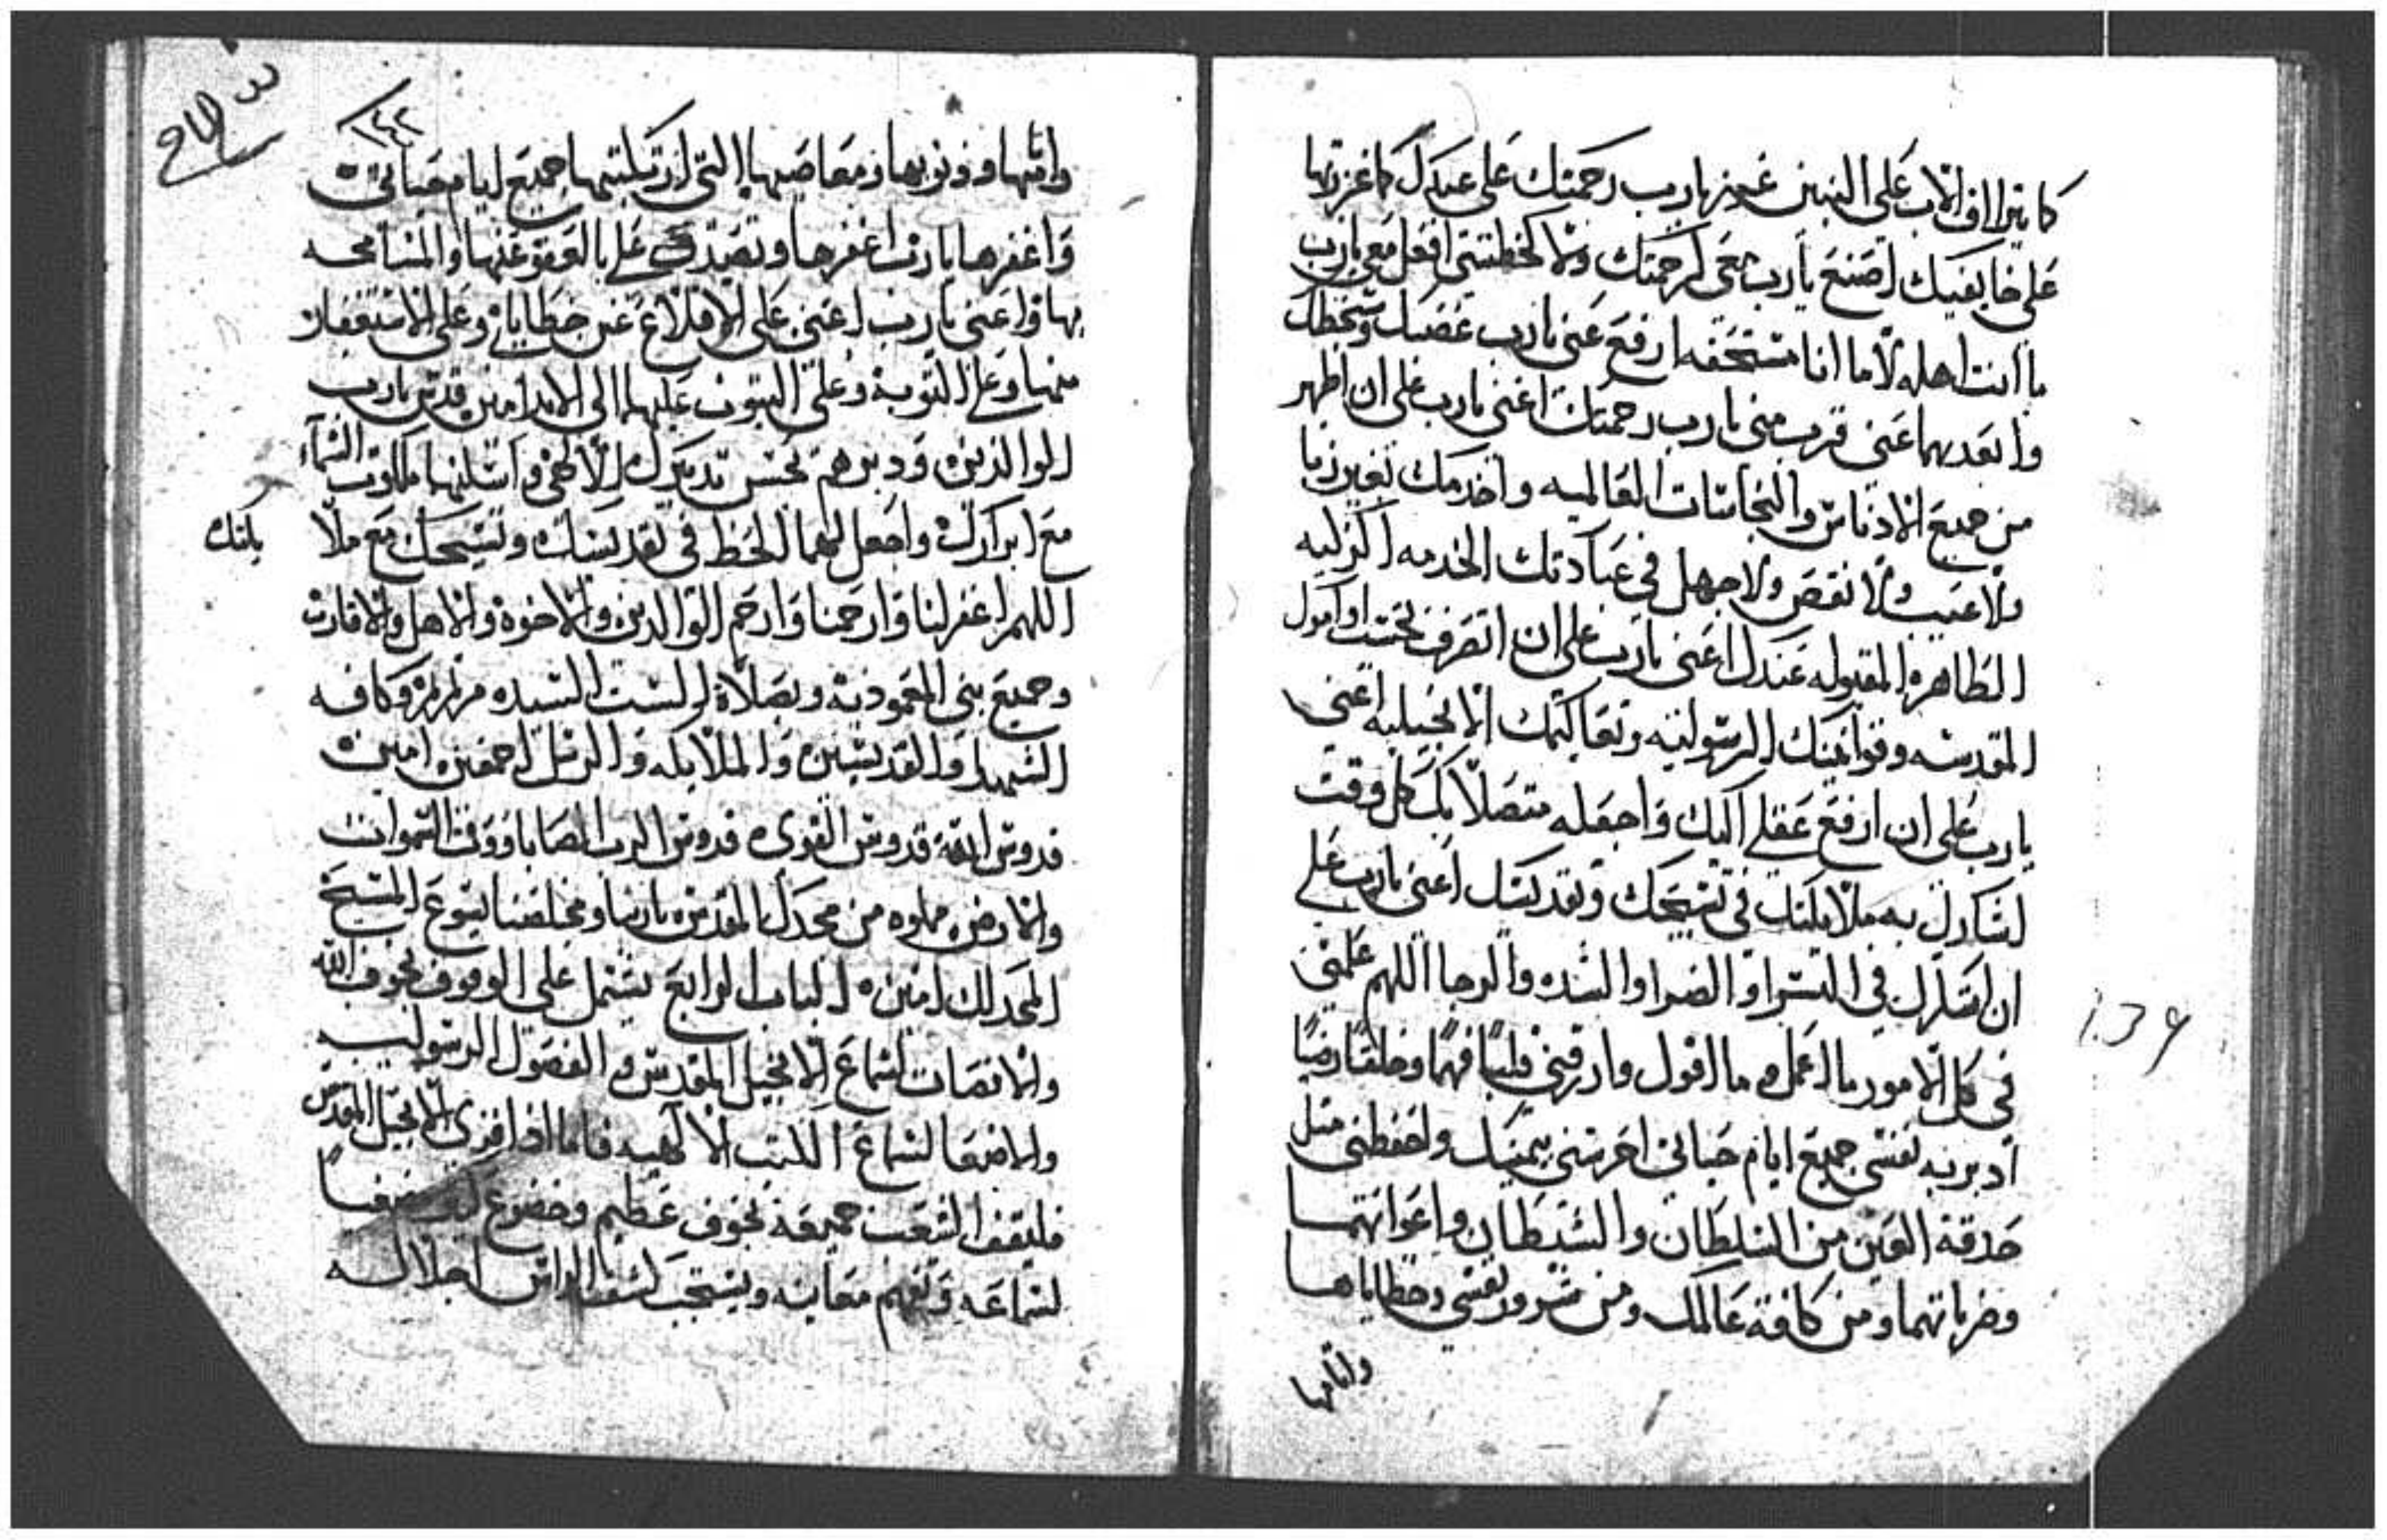 كما يتراف الاب على البنين غزر يارب رحمتك على عبدك كما غزرتها
على خايفيك اصنع يارب معي كرحمتك ولا كخطيتي افعل معي يارب
ما انت اهله لا ما انا مستحقه ارفع عني يارب غضبك وسخطك
وابعدهما عني قرب مني يارب رحمتك اعني يارب على ان اطهر
من جميع الادناس والنجاسات العالميه واخدمك بغير زيا
ولا عيب ولا نقص ولا جهل في عبادتك الخدمه الزكيه
الطاهره المقبوله عندك اعني يارب على ان اتصرف تحت اوامرك
المقدسه وقوانينك الرسوليه وتعاليمك الانجيليه اعني
يارب على ان ارفع عقلي اليك واجعله متصلا بك كل وقت
ليشارك به ملايكتك في تسبيحك وتقديسك اعني يارب على
ان اشكرك في السرا والضرا والشده والرجا اللهم علمني
في كل الامور ما اعمل وما اقول وارزقني قلبا فهما وخلقا رضيا
ادبر به نفسي جميع ايام حياتي احرسني بيمينك واحفظني مثل
حدقة العين من السلطان والشيطان واعوانهما
وضرباتهما ومن كافة عالمك ومن شرور نفسي وخطاياها
واثامها
١٤٢
واثمها وذنوبها ومعاصيها التي ارتكبتها جميع ايام حياتي
واغفرها يارب اغفرها وتصدق علي بالعفو عنها والمسامحه
بها واعني يارب اعني على الاقلاع عن خطاياي وعلى الاستغفار
منها وعلى التوبة وعلى الثبوت عليها الى الابد امين قدس يارب
الوالدين ودبرهم بحسن تدبيرك الالاهي واسكنهما ملكوت السماء
مع ابرارك واجعل لهما الحظ في تقديسك وتسبيحك مع ملا
يكتك
اللهم اغفر لنا وارحمنا وارحم الوالدين والاخوة والاهل والاقارب
وجميع بني المعموديه وبصلاة الست السيده مرتمريم وكافه
الشهدا والقديسين والملايكه والرسل اجمعين امين
قدوس الله قدوس القوي قدوس الرب الصاباووت السموات
والارض مملوه من مجدك المقدس ياربنا ومخلصنا يسوع المسيح
المجد لك امين الباب الرابع يشتمل على الوقوف بخوف الله
والانصات لسماع الانجيل المقدس والفصول الرسوليه
والاصغا لسماع الكتب الالهيه فاما اذا قري الانجيل المقدس
فليقف الشعب جميعه بخوف عظيم وخضوع
لسماعه وتفهم معانيه ويستحب كشف الراس اجلالا له